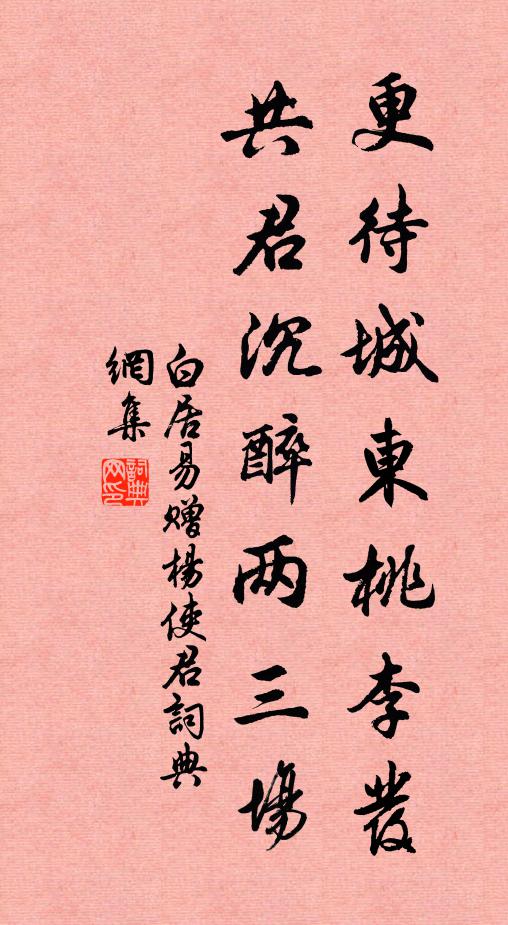 更待城東桃李發
共君沉醉两三場
白居易赠楊使君詞典
網集
詞典
网印